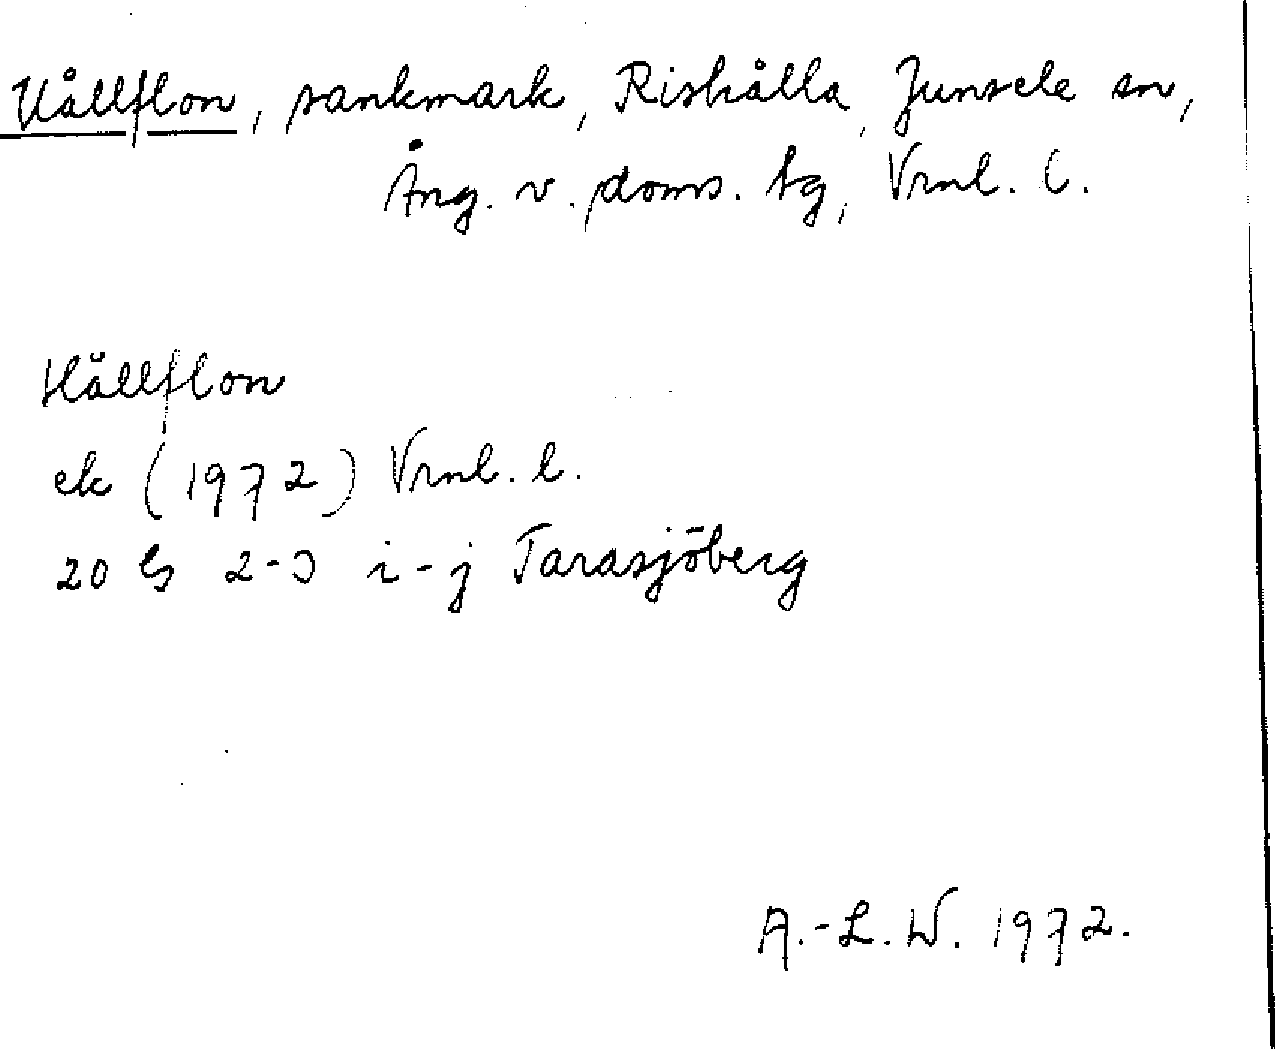 Hållflon, sankmark, Rishålla, Junsele sn,
Ång. v. doms. tg, Vrnl. l.
Hållflon
ek (1972) Vrnl. l.
20 G 2-3 i-j Tarasjöberg
A.-L. W. 1972.